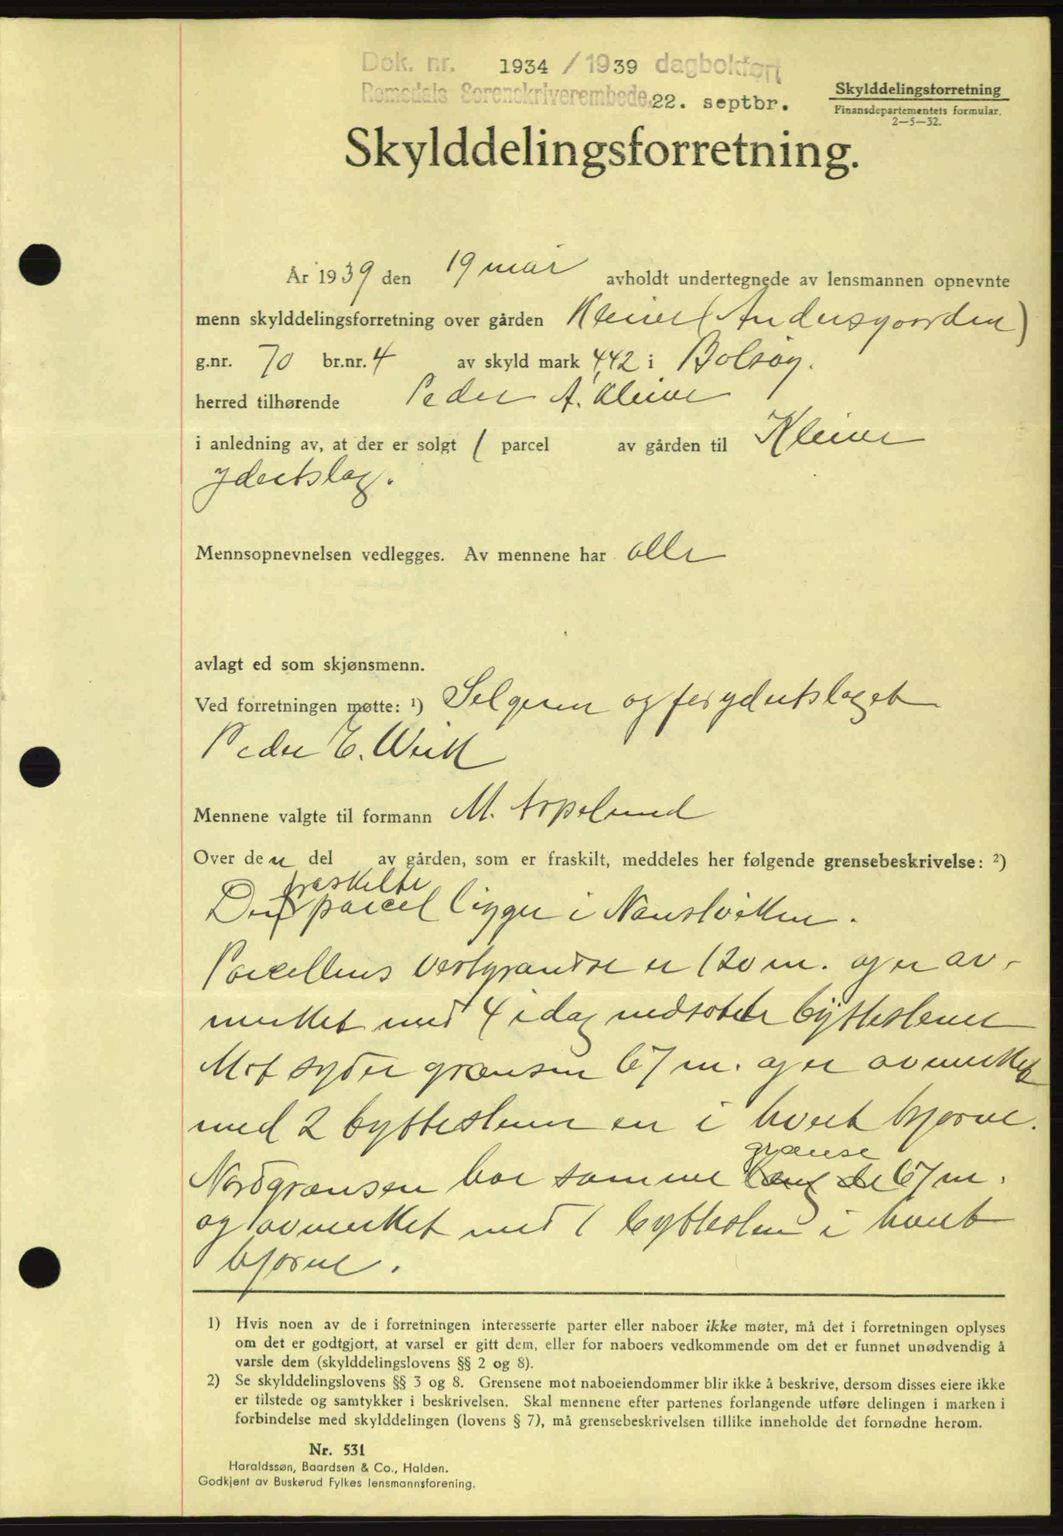 Dok. nr. 1934 / 1939 dagbokført
Romsdals Sorenskriverembede 22. septbr.
Skylddelingsforretning
Finansdepartementets formular.
2—5—32.
Skylddelingsforretning.
År 1939 den 19 mai avholdt undertegnede av lensmannen opnevnte
menn skylddelingsforretning over gården Kleive (Andersgaarden)
g.nr. 70 br.nr. 4 av skyld mark 4,42 i Bolsøy.
herred tilhørende Peder A. Kleive
i anledning av, at der er solgt 1 parcel av gården til Kleive
ydertslag.
Mennsopnevnelsen vedlegges. Av mennene har alle
avlagt ed som skjønsmenn.
Ved forretningen møtte: ¹) Selgeren og for ydertslaget
Peder E.
Mennene valgte til formann M. Aspelund
Over den del av gården, som er fraskilt, meddeles her følgende grensebeskrivelse: ²)
fraskilte
Den parcel ligger i
Parcellens vestgrændse er 120 m. og er av-
merket med 4 idag nedsatte byttestener
Mot syder grænsen 67 m. og er avmerket
med 2 byttestener en i hvert hjørne.
grænse
Nordgrænsen har samme 67 m.
og avmerket med 1 byttesten i hvert
hjørne.
1) Hvis noen av de i forretningen interesserte parter eller naboer ikke møter, må det i forretningen oplyses
om det er godtgjort, at varsel er gitt dem, eller for naboers vedkommende om det er funnet unødvendig å
varsle dem (skylddelingslovens §§ 2 og 8).
2) Se skylddelingslovens §§ 3 og 8. Grensene mot naboeiendommer blir ikke å beskrive, dersom disses eiere ikke
er tilstede og samtykker i beskrivelsen. Skal mennene efter partenes forlangende utføre delingen i marken i
forbindelse med skylddelingen (lovens § 7), må grensebeskrivelsen tillike inneholde det fornødne herom.
Nr. 531
Haraldssøn, Baardsen & Co., Halden.
Godkjent av Buskerud Fylkes lensmannsforening.